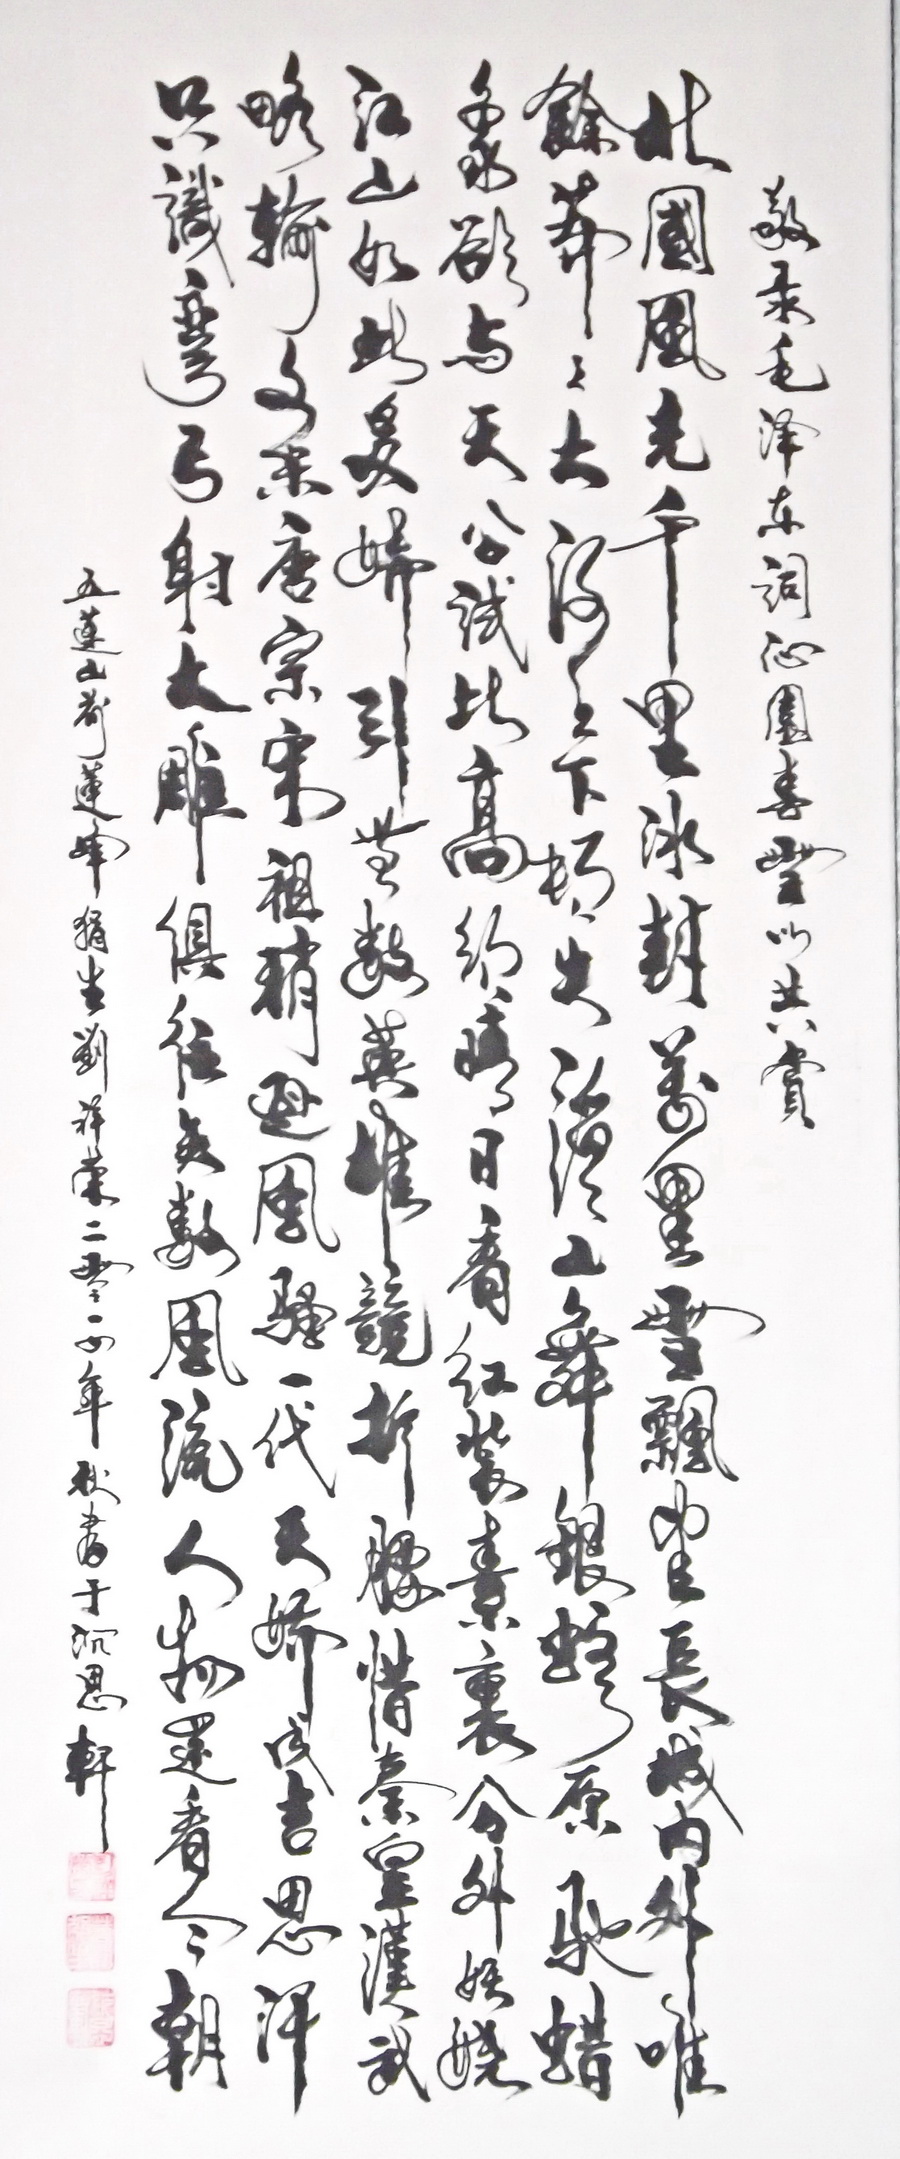 敬录毛泽东词沁园春雪以共赏
北國風光千里冰封萬里雪飄望長城內外唯
餘莽々大河上下頓失滔滔山舞銀蛇原馳蜡
象欲与天公試比高須晴日看紅裝素裹分外妖嬈
江山如此多嬌引無數英雄競折腰惜秦皇漢武
略輸文采唐宗宋祖稍遜風騷一代天嬌成吉思汗
只識彎弓射大雕俱往矣數風流人物還看今朝
五蓮山前蓮峰狷生劉祥榮二零一四年秋書于沉思軒